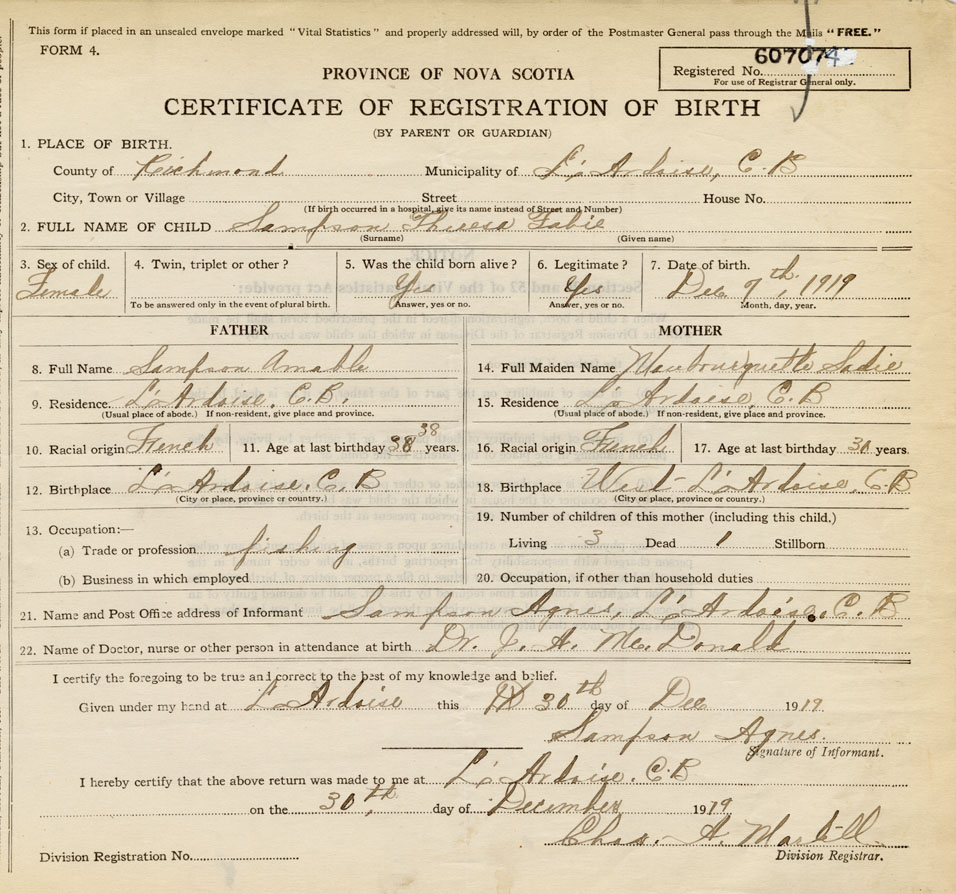 This form if placed in an unsealed envelope marked "Vital Statistics" and properly addressed will, by order of the Postmaster General pass through the Mails "FREE."
FORM 4.
PROVINCE OF NOVA SCOTIA
Registered No. 607074
For use of Registrar General only.
CERTIFICATE OF REGISTRATION OF BIRTH
(BY PARENT OR GUARDIAN)
1. PLACE OF BIRTH.
County of Richmond Municipality of L'Ardoise, C.B
City, Town or Village Street House No.
(If birth occurred in a hospital, give its name instead of Street and Number)
2. FULL NAME OF CHILD Sampson Theresa Fabie
(Surname) (Given name)
3. Sex of child. 4. Twin, triplet or other? 5. Was the child born alive? 6. Legitimate? 7. Date of birth.
Female Yes Yes Dec 9th, 1919
To be answered only in the event of plural birth. Answer, yes or no. Answer, yes or no. Month, day, year.
FATHER MOTHER
8. Full Name Sampson Amable 14. Full Maiden Name Sadie
9. Residence. L'Ardoise, C.B. 15. Residence L'Ardoise, C.B
(Usual place of abode.) If non-resident, give place and province. (Usual place of abode.) If non-resident, give place and province.
10. Racial origin French 11. Age at last birthday 38 38 years. 16. Racial origin French 17. Age at last birthday 30 years.
12. Birthplace L'Ardoise, C.B 18. Birthplace West L'Ardoise, C.B
(City or place, province or country.) (City or place, province or country.)
13. Occupation:— 19. Number of children of this mother (including this child.)
(a) Trade or profession fishing Living 3 Dead 1 Stillborn
(b) Business in which employed 20. Occupation, if other than household duties
21. Name and Post Office address of Informant Sampson Agnes, L'Ardoise, C.B
22. Name of Doctor, nurse or other person in attendance at birth Dr. J. A. McDonald
I certify the foregoing to be true and correct to the best of my knowledge and belief.
Given under my hand at L'Ardoise this 30th day of Dec 1919
Sampson Agnes.
Signature of Informant.
I hereby certify that the above return was made to me at L'Ardoise. C.B
on the 30th day of December 1919
Chas. A. Martell
Division Registrar.
Division Registration No.